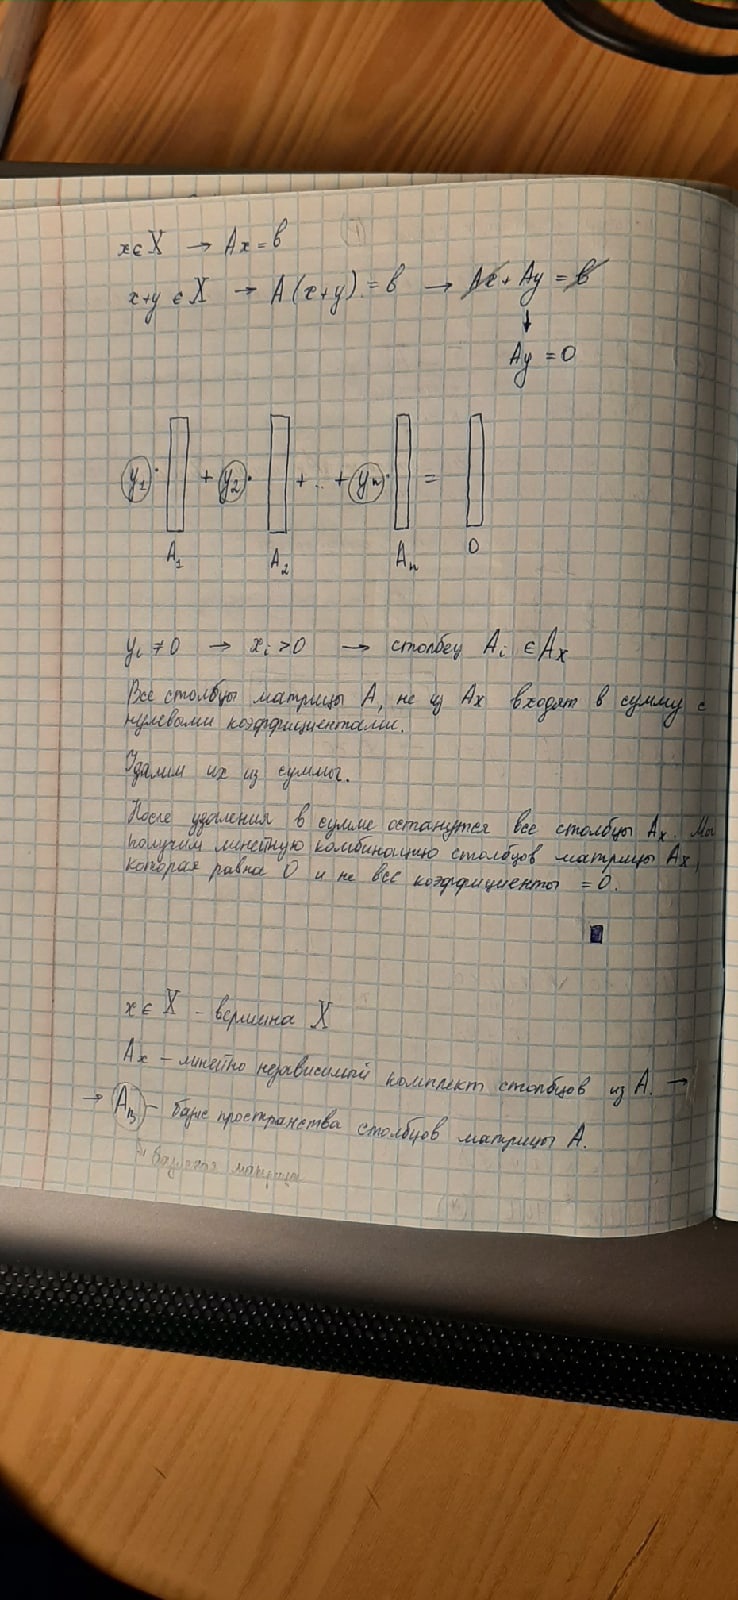 x ∈ X → Ax = b
x+y ∈ X → A(x+y) = b → Ax + Ay = b
↓
Ay = 0
y₁ · + y₂ · + .. + yₙ · =
A₁ A₂ Aₙ 0
yᵢ ≠ 0 → xᵢ > 0 → столбец Aᵢ ∈ Aₓ
Все столбцы матрицы A, не из Aₓ входят в сумму с
нулевыми коэффициентами.
Удалим их из суммы.
После удаления в сумме останутся все столбцы Aₓ. Мы
получим линейную комбинацию столбцов матрицы Aₓ,
которая равна 0 и не все коэффициенты = 0.
x ∈ X - вершина X
Aₓ – линейно независимый комплект столбцов из A. →
→ A_B – базис пространства столбцов матрицы A.
базисная матрица